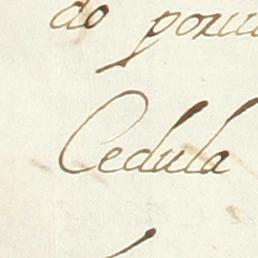 do
Cedula